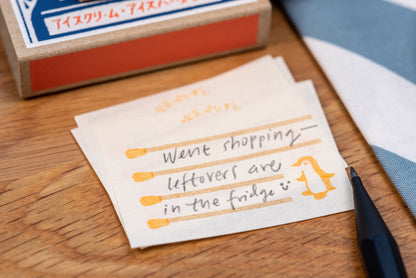 アイスクリーム・アイスバー
Went shopping—
leftovers are
in the fridge